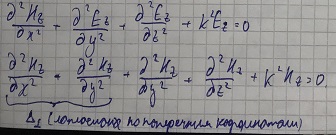 ∂²H_z/∂x² + ∂²E_z/∂y² + ∂²E_z/∂z² + k²E_z = 0
∂²H_z/∂x² + ∂²H_z/∂y² + ∂²H_z/∂y² + ∂²H_z/∂z² + k²H_z = 0.
Δ⊥ (лапласиан по поперечным координатам)